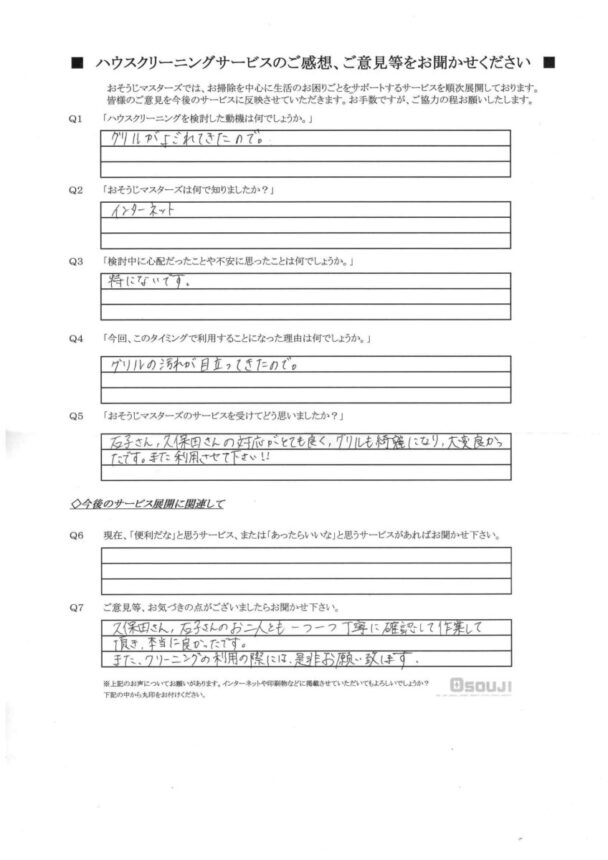 ■ ハウスクリーニングサービスのご感想、ご意見等をお聞かせください ■
おそうじマスターズでは、お掃除を中心に生活のお困りごとをサポートするサービスを順次展開しております。
皆様のご意見を今後のサービスに反映させていただきます。お手数ですが、ご協力の程お願いしたします。
Q1 「ハウスクリーニングを検討した動機は何でしょうか。」
グリルがよごれてきたので。
Q2 「おそうじマスターズは何で知りましたか？」
インターネット
Q3 「検討中に心配だったことや不安に思ったことは何でしょうか。」
特にないです。
Q4 「今回、このタイミングで利用することになった理由は何でしょうか。」
グリルの汚れが目立ってきたので。
Q5 「おそうじマスターズのサービスを受けてどう思いましたか？」
石子さん,久保田さんの対応がとても良く,グリルも綺麗になり,大変良かっ
たです。また利用させて下さい!!
◇今後のサービス展開に関連して
Q6 現在、「便利だな」と思うサービス、または「あったらいいな」と思うサービスがあればお聞かせ下さい。
Q7 ご意見等、お気づきの点がございましたらお聞かせ下さい。
久保田さん,石子さんのお二人とも一つ一つ丁寧に確認して作業して
頂き、本当に良かったです。
また、クリーニングの利用の際には、是非お願い致します。
※上記のお声についてお願いがあります。インターネットや印刷物などに掲載させていただいてもよろしいでしょうか？
下記の中から丸印をお付けください。
OSOUJI